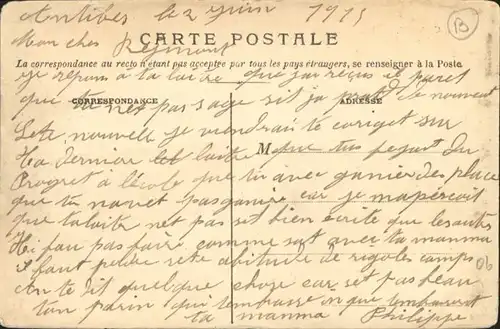 Antibes le 2 juin 1915
B
Mon cher Reymont
CARTE POSTALE
La correspondance au recto n'étant pas acceptée par tous les pays étrangers, se renseigner à la Poste
je repons a ta laitre que jai resus il paret
que tu net pas sage sit ja de nouveau
CORRESPONDANCE
ADRESSE
sete nouvelle je viendrait te coriget sur
ta dernier laitre que tu fesait du
M
Progret a l'école que tu avec ganier des place
que tu navet pas ganier car je mapersoit
que ta laite net pas set bien ecrite que les autres
Hi fau pas faire comme sat avec ta manma
il faut pedre sete abitude de rigoles
06
An te dit quelque chose car set pas beau
ton parin qui tembrasse ainque
ta manma Philippe